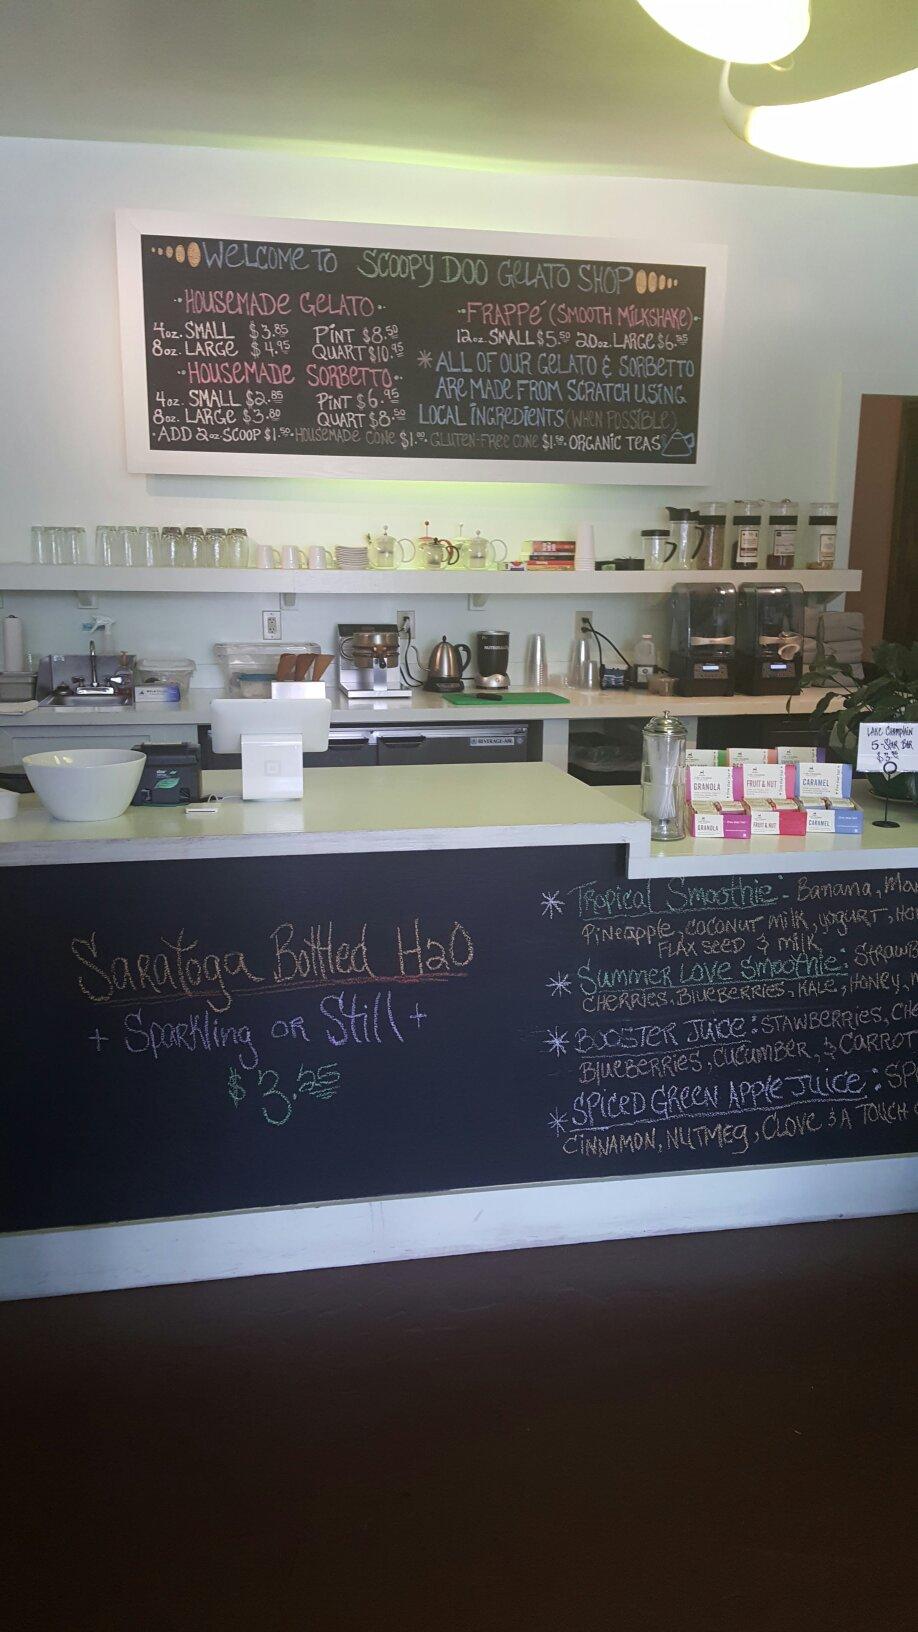 WELCOME TO SCOOPY DOO GELATO SHOP
HOUSEMADE GELATO
4oz. SMALL $3.85 PINT $8.50
8oz. LARGE $4.95 QUART $10.95
HOUSEMADE SORBETTO
4oz. SMALL $2.85 PINT $6.95
8oz. LARGE $3.80 QUART $8.50
FRAPPÉ (SMOOTH MILKSHAKE)
12oz. SMALL $5.50 20oz. LARGE $6.
*ALL OF OUR GELATO & SORBETTO
ARE MADE FROM SCRATCH USING
LOCAL INGREDIENTS (WHEN POSSIBLE)
·ADD 2oz SCOOP $1.50 · HOUSEMADE CONE $1.00 · GLUTEN-FREE CONE $1.50 · ORGANIC TEAS
BEVERAGE-AIR
LAKE CHAMPLAIN
5-STAR BAR
GRANOLA FRUIT & NUT CARAMEL
GRANOLA FRUIT & NUT CARAMEL
Saratoga Bottled H2O
+ Sparkling or Still +
$3.25
* Tropical Smoothie: Banana,
Pineapple, coconut milk, yogurt,
FLAX SEED & MILK
* Summer Love Smoothie:
CHERRIES, BLUEBERRIES, KALE, HONEY,
* BOOSTER JUICE: STAWBERRIES,
BLUEBERRIES, CUCUMBER, & CARROT
* SPICED GREEN APPLE JUICE:
CINNAMON, NUTMEG, CLOVE & A TOUCH